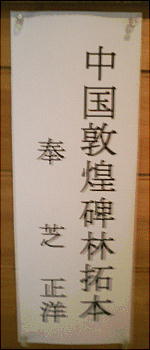 中国敦煌碑林拓本
奉 芝 正洋